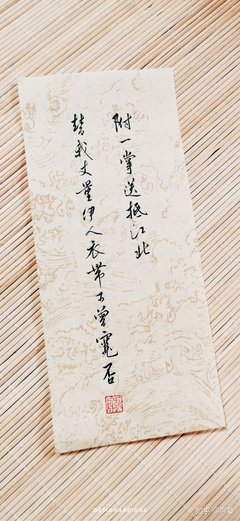 附一掌送抵江北
替我丈量伊人衣带可曾宽否
DESIGN&BRIDGE
知乎 @阿凝